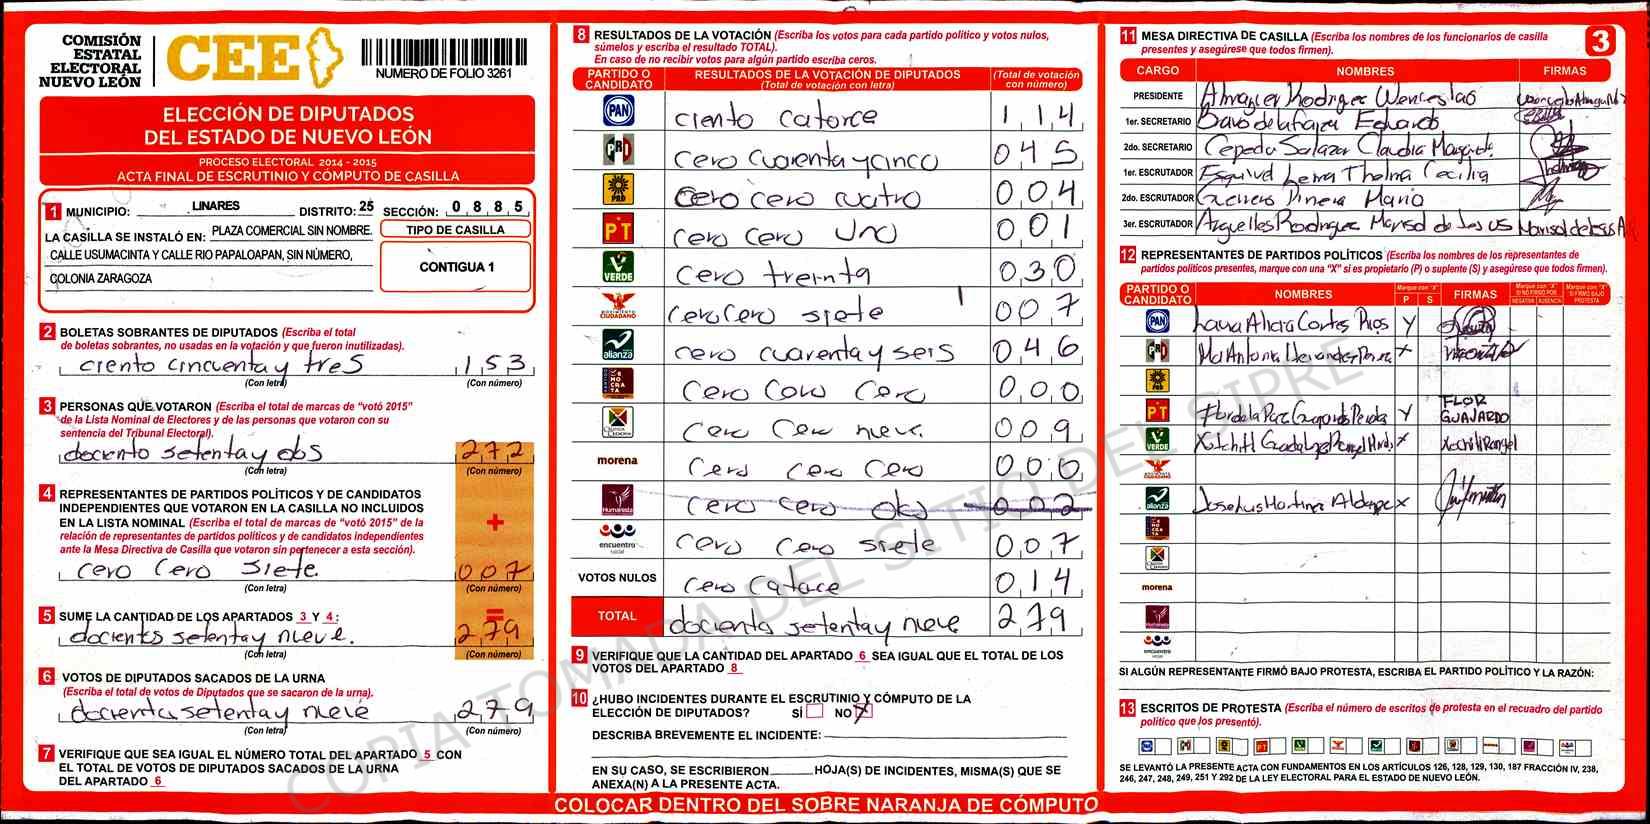 COMISIÓN
ESTATAL
ELECTORAL
NUEVO LEÓN
CEE
NUMERO DE FOLIO 3261
ELECCIÓN DE DIPUTADOS
DEL ESTADO DE NUEVO LEÓN
PROCESO ELECTORAL 2014 - 2015
ACTA FINAL DE ESCRUTINIO Y CÓMPUTO DE CASILLA
1 MUNICIPIO: LINARES DISTRITO: 25 SECCIÓN: 0 8 8 5
LA CASILLA SE INSTALÓ EN: PLAZA COMERCIAL SIN NOMBRE.
CALLE USUMACINTA Y CALLE RIO PAPALOAPAN, SIN NÚMERO,
COLONIA ZARAGOZA
TIPO DE CASILLA
CONTIGUA 1
2 BOLETAS SOBRANTES DE DIPUTADOS (Escriba el total
de boletas sobrantes, no usadas en la votación y que fueron inutilizadas).
ciento cincuenta y tres 153
(Con letra) (Con número)
3 PERSONAS QUE VOTARON (Escriba el total de marcas de "votó 2015"
de la Lista Nominal de Electores y de las personas que votaron con su
sentencia del Tribunal Electoral).
dociento setenta y dos 272
(Con letra) (Con número)
4 REPRESENTANTES DE PARTIDOS POLÍTICOS Y DE CANDIDATOS
INDEPENDIENTES QUE VOTARON EN LA CASILLA NO INCLUIDOS
EN LA LISTA NOMINAL (Escriba el total de marcas de "votó 2015" de la
relación de representantes de partidos políticos y de candidatos independientes
ante la Mesa Directiva de Casilla que votaron sin pertenecer a esta sección).
+
cero cero siete 007
(Con letra) (Con número)
=
5 SUME LA CANTIDAD DE LOS APARTADOS 3 Y 4:
docientos setenta y nueve. 279
(Con letra) (Con número)
6 VOTOS DE DIPUTADOS SACADOS DE LA URNA
(Escriba el total de votos de Diputados que se sacaron de la urna).
docienta setenta y nueve 279
(Con letra) (Con número)
7 VERIFIQUE QUE SEA IGUAL EL NÚMERO TOTAL DEL APARTADO 5 CON
EL TOTAL DE VOTOS DE DIPUTADOS SACADOS DE LA URNA
DEL APARTADO 6
8 RESULTADOS DE LA VOTACIÓN (Escriba los votos para cada partido político y votos nulos,
súmelos y escriba el resultado TOTAL).
En caso de no recibir votos para algún partido escriba ceros.
PARTIDO O CANDIDATO
RESULTADOS DE LA VOTACIÓN DE DIPUTADOS
(Total de votación con letra)
(Total de votación con número)
PAN ciento catorce 114
PRI cero cuarenta y cinco 045
PRD cero cero cuatro 004
PT cero cero uno 001
VERDE cero treinta 030
MOVIMIENTO CIUDADANO cero cero siete 007
alianza cero cuarenta y seis 046
cero cero cero 000
cero cero nueve 009
morena cero cero cero 000
Humanista cero cero dos 002
encuentro social cero cero siete 007
VOTOS NULOS cero catorce 014
TOTAL dociento setenta y nueve 279
9 VERIFIQUE QUE LA CANTIDAD DEL APARTADO 6 SEA IGUAL QUE EL TOTAL DE LOS
VOTOS DEL APARTADO 8
10 ¿HUBO INCIDENTES DURANTE EL ESCRUTINIO Y CÓMPUTO DE LA
ELECCIÓN DE DIPUTADOS? SÍ NO X
DESCRIBA BREVEMENTE EL INCIDENTE:
EN SU CASO, SE ESCRIBIERON HOJA(S) DE INCIDENTES, MISMA(S) QUE SE
ANEXA(N) A LA PRESENTE ACTA.
COLOCAR DENTRO DEL SOBRE NARANJA DE CÓMPUTO
11 MESA DIRECTIVA DE CASILLA (Escriba los nombres de los funcionarios de casilla
presentes y asegúrese que todos firmen).
3
CARGO NOMBRES FIRMAS
PRESIDENTE Almaguer Rodrigez Wenceslao
1er. SECRETARIO Eduardo
2do. SECRETARIO Cepeda Salazar Claudia Margarita
1er. ESCRUTADOR Esquivel Lerma Thelma Cecilia
2do. ESCRUTADOR Guerrero Pinera Mario
3er. ESCRUTADOR Arguelles Rodriguez Marisol de Jesus
12 REPRESENTANTES DE PARTIDOS POLÍTICOS (Escriba los nombres de los representantes de
partidos políticos presentes, marque con una "X" si es propietario (P) o suplente (S) y asegúrese que todos firmen).
PARTIDO O CANDIDATO NOMBRES Marque con "X" P S FIRMAS Marque con "X" SI NO FIRMÓ POR: NEGATIVA AUSENCIA Marque con "X" SI FIRMÓ BAJO PROTESTA
PAN Laura Alicia Cortes Rios
PRI Ma Antonia Hernandez X
PRD
PT Flor de la Paz Guajardo FLOR GUAJARDO
VERDE Xochitl Guadalupe Rangel X Xochitl Rangel
alianza Jose Luis Martinez Aldape X
morena
SI ALGÚN REPRESENTANTE FIRMÓ BAJO PROTESTA, ESCRIBA EL PARTIDO POLÍTICO Y LA RAZÓN:
13 ESCRITOS DE PROTESTA (Escriba el número de escritos de protesta en el recuadro del partido
político que los presentó).
SE LEVANTÓ LA PRESENTE ACTA CON FUNDAMENTOS EN LOS ARTÍCULOS 126, 128, 129, 130, 187 FRACCIÓN IV, 238,
246, 247, 248, 249, 251 Y 292 DE LA LEY ELECTORAL PARA EL ESTADO DE NUEVO LEÓN.
COPIA TOMADA DEL SITIO DEL SIPRE